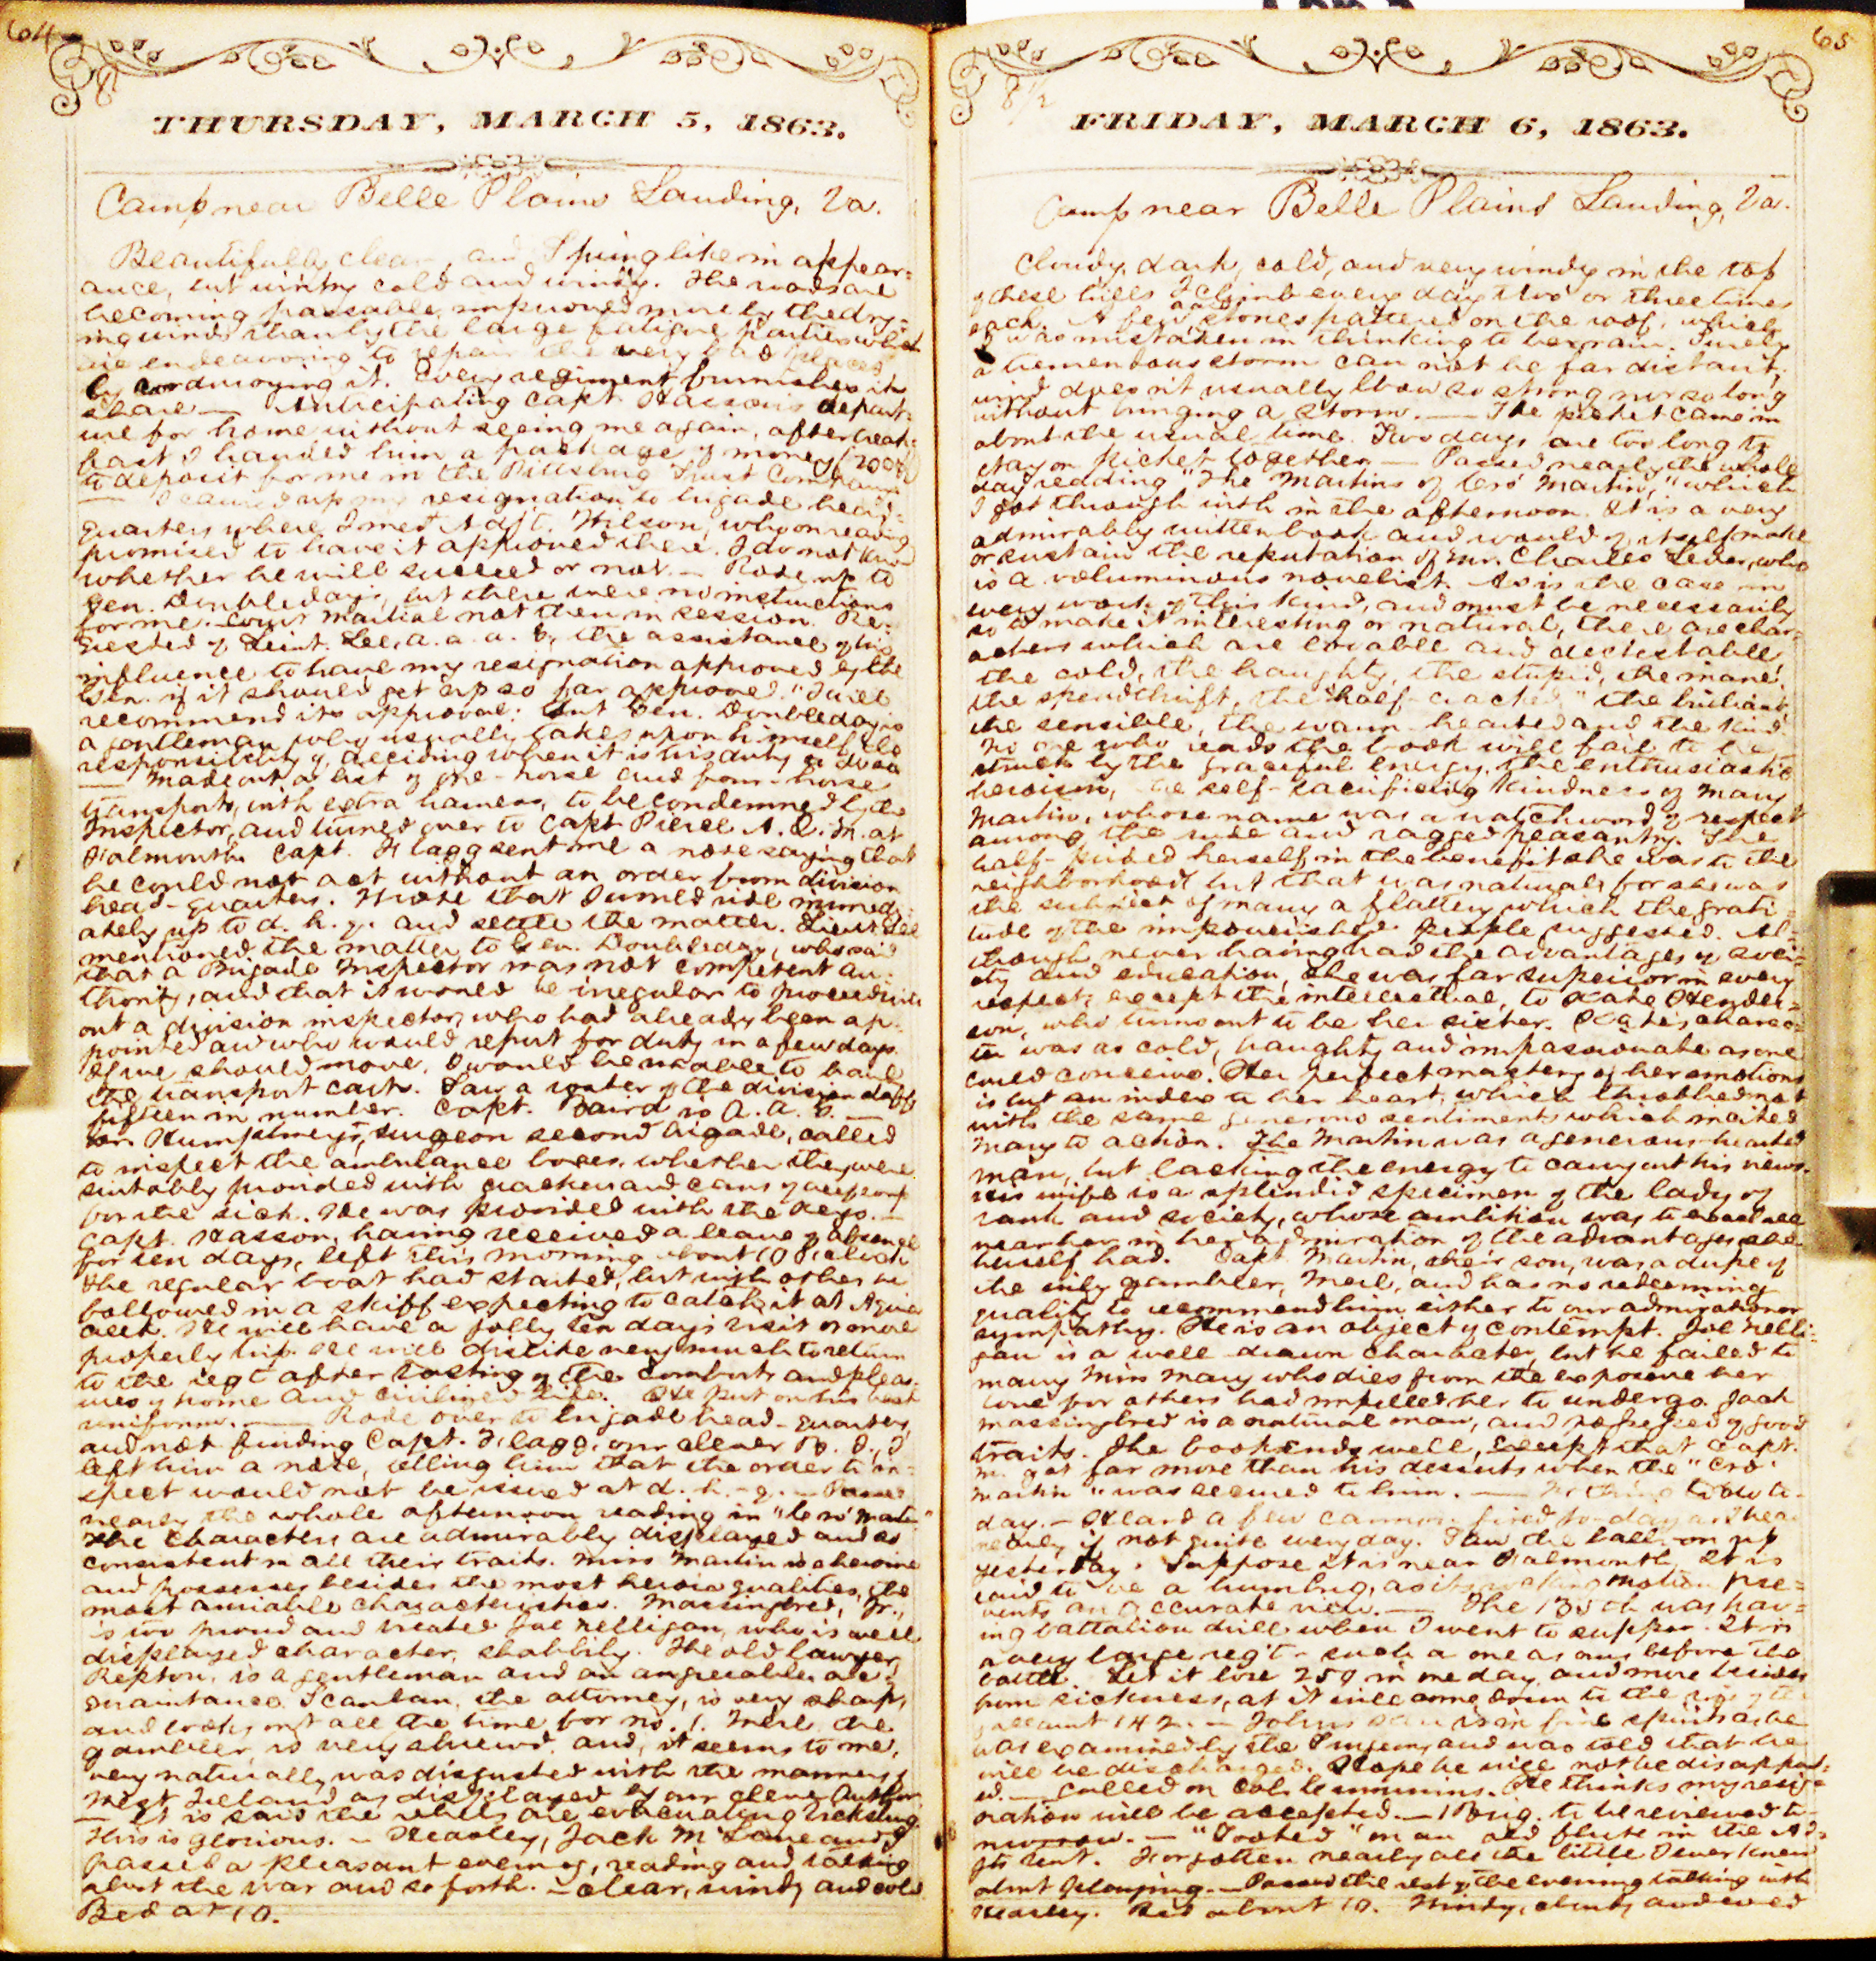 64
8
THURSDAY, MARCH 5, 1863.
Camp near Belle Plains Landing, Va.
Beautifully clear, and Spring like in appear=
ance, but wintry cold and windy. The roads are
becoming passable, improved more by the dry=
ing winds than by the large fatigue parties which
are endeavoring to repair the very bad places
by corduroying it. Every regiment furnishes its
share — Anticipating Capt. Hasson's depart=
ure for home without seeing me again, after break=
fast I handed him a package of money (200$)
to deposit for me in the Pittsburg Trust Company
— I carried up my resignation to brigade head=
quarters where I met Adjt. Wilson, who on reading
promised to have it approved there. I do not know
whether he will succeed or not. — Rode up to
Gen. Doubleday's, but there were no instructions
for me. Court Martial not then in session. Re=
quested of Leint. Lee, a. a. a. G., the assistance of his
influence to have my resignation approved by the
Gen. if it should get up so far approved. "I will
recommend its approval: but Gen. Doubleday is
a gentleman who usually takes upon himself the
responsibility of deciding when it is his duty to do so
— Made out a list of one-horse and four-horse
transports, with extra harness, to be condemned by the
Inspector, and turned over to Capt. Pierce A. Q. M. at
Falmouth. Capt. Flagg sent me a note saying that
he could not act without an order from division
head-quarters. Wrote that I would ride immedi=
ately up to d. h. q. and settle the matter. Lieut Lee
mentioned the matter to Gen. Doubleday, who said
that a Brigade Inspector was not competent au=
thority, and that it would be irregular to proceed with
out a division inspector, who had already been ap=
pointed and who would report for duty in a few days.
If we should move, I would be unable to haul
the transport carts. Saw a roster of the division staff
fifteen in number. Capt. Baird is A. A. G. —
Humphreys, surgeon second brigade, called
to inspect the ambulance boxes, whether they were
suitably provided with crackers and cans of beef soup
for the sick. He was provided with the keys. —
Capt. Hasson, having received a leave of absence
for ten days, left this morning about 10 O'clock
the regular boat had started, but with others he
followed in a skiff expecting to catch it at Aquia
Creek. He will have a jolly ten days visit or more
properly trip. He will dislike very much to return
to the regt after tasting of the comforts and pleas=
ures of home and civilized life. He put on his best
uniform. — Rode over to brigade head-quarters,
and not finding Capt. Flagg, our clever B. I., I
left him a note, telling him that the order to in=
spect would not be issued at d. h.-q. — Passed
nearly the whole afternoon reading in "Cro' Martin"
The characters are admirably displayed and as
consistent in all their traits. Miss Martin is a heroine
and possesses besides the most heroic qualities, the
most amiable characteristics. Massingbred, Jr.,
is too proud and treated Joe Nelligan, who is a well
displayed character, shabbily. The old lawyer,
Repton, is a gentleman and an agreeable ac=
quaintance. Scanlan, the attorney, is very sharp,
and looks out all the time for no. 1. Merl, the
gambler, is very shrewd, and, it seems to me,
very naturally was disgusted with the manners of
West Ireland as displayed by our clever Author
— It is said the rebels are evacuating Vicksburg.
This is glorious. — Heasley, Jack McLane and I
passed a pleasant evening, reading and talking
about the war and so forth. — Clear, windy and cold
Bed at 10.
65
8 1/2
FRIDAY, MARCH 6, 1863.
Camp near Belle Plains Landing, Va.
Cloudy, dark, cold, and very windy in the top
of these hills I climb every day two or three times
each. A few stones pattered on the roof, which
I was mistaken in thinking to be rain. Surely
a tremendous storm can not be far distant;
wind does n't usually blow so strong nor so long
without bringing a storm. — The picket came in
about the usual time. Two days are too long to
stay on picket together — Passed nearly the whole
day reading "The Martins of Cro' Martin," which
I got through with in the afternoon. It is a very
admirably written book and would of itself make
or sustain the reputation of Mr. Charles Lever, who
is a voluminous novelist. As is the case in
every work of this kind, and must be necessarily
so to make it interesting or natural, there are char=
acters which are lovable and detestable,
the cold, the haughty, the stupid, the inane,
the spendthrift, the "half-cracked" the brilliant,
the sensible, the warm-hearted and the kind
No one who reads the book will fail to be
struck by the graceful energy, the enthusiastic
heroism, the self-sacrificing kindness of Mary
Martin, whose name was a watchword of respect
among the rude and ragged peasantry. She
half-prided herself in the benefit she was to the
neighborhood but that was natural, for she was
the subject of many a flattery which the grati=
tude of the impoverished people suggested. Al=
though never having had the advantages of soci=
ety and education, she was far superior in every
respect, except the intellectual, to Kate Hender=
son, who turns out to be her sister. Kate's charac=
ter was as cold, haughty and impassionate as one
could conceive. Her perfect mastery of her emotions
is but an index to her heart, which throbbed not
with the same generous sentiments which incited
Mary to action. The Martin was a generous-hearted
man, but lacking the energy to carry out his views.
His wife is a splendid specimen of the lady of
rank and society, whose ambition was to
near her in her admiration of the advantages she
herself had. Capt. Martin, their son, was a dupe of
the wily gambler, Merl, and has no redeeming
quality to recommend him either to our admiration or
sympathy. He is an object of contempt. Joe Nelli=
gan is a well-drawn character, but he failed to
marry Miss Mary who dies from the exposure her
love for others had impelled her to undergo. Jack
Massingbred is a natural man, and possessed of good
traits. The book ends well, except that Capt.
M. got far more than his deserts when the "Cro'
Martin" was secured to him. — Nothing to do to-
day. — Heard a few cannon fired to-day as I hear
nearly if not quite every day. Saw the balloon up
yesterday. Suppose it is near Falmouth. It is
said to be a humbug, as its rocking motion pre=
vents an accurate view. — The 135th was hav=
ing battalion drill when I went to supper. It is
a very large reg't — such a one as ours before the
battle. Let it lose 259 in one day, and more besides
from sickness, at it will come down to the size of the
gallant 142. — John's son is in fine spirits as he
was examined by the Surgeon, and was told that he
will be discharged. Hope he will not be disappoint=
ed. — Called on Col. Cummins. He thinks my resig=
nation will be accepted. — 1 Brig. to be reviewed to-
morrow. — "Tooted" on an old flute in the Ad=
jt's tent. Forgotten nearly all the little I ever knew
about playing. — Passed the rest of the evening talking with
Heasley. Bed about 10. Windy, cloudy and cold